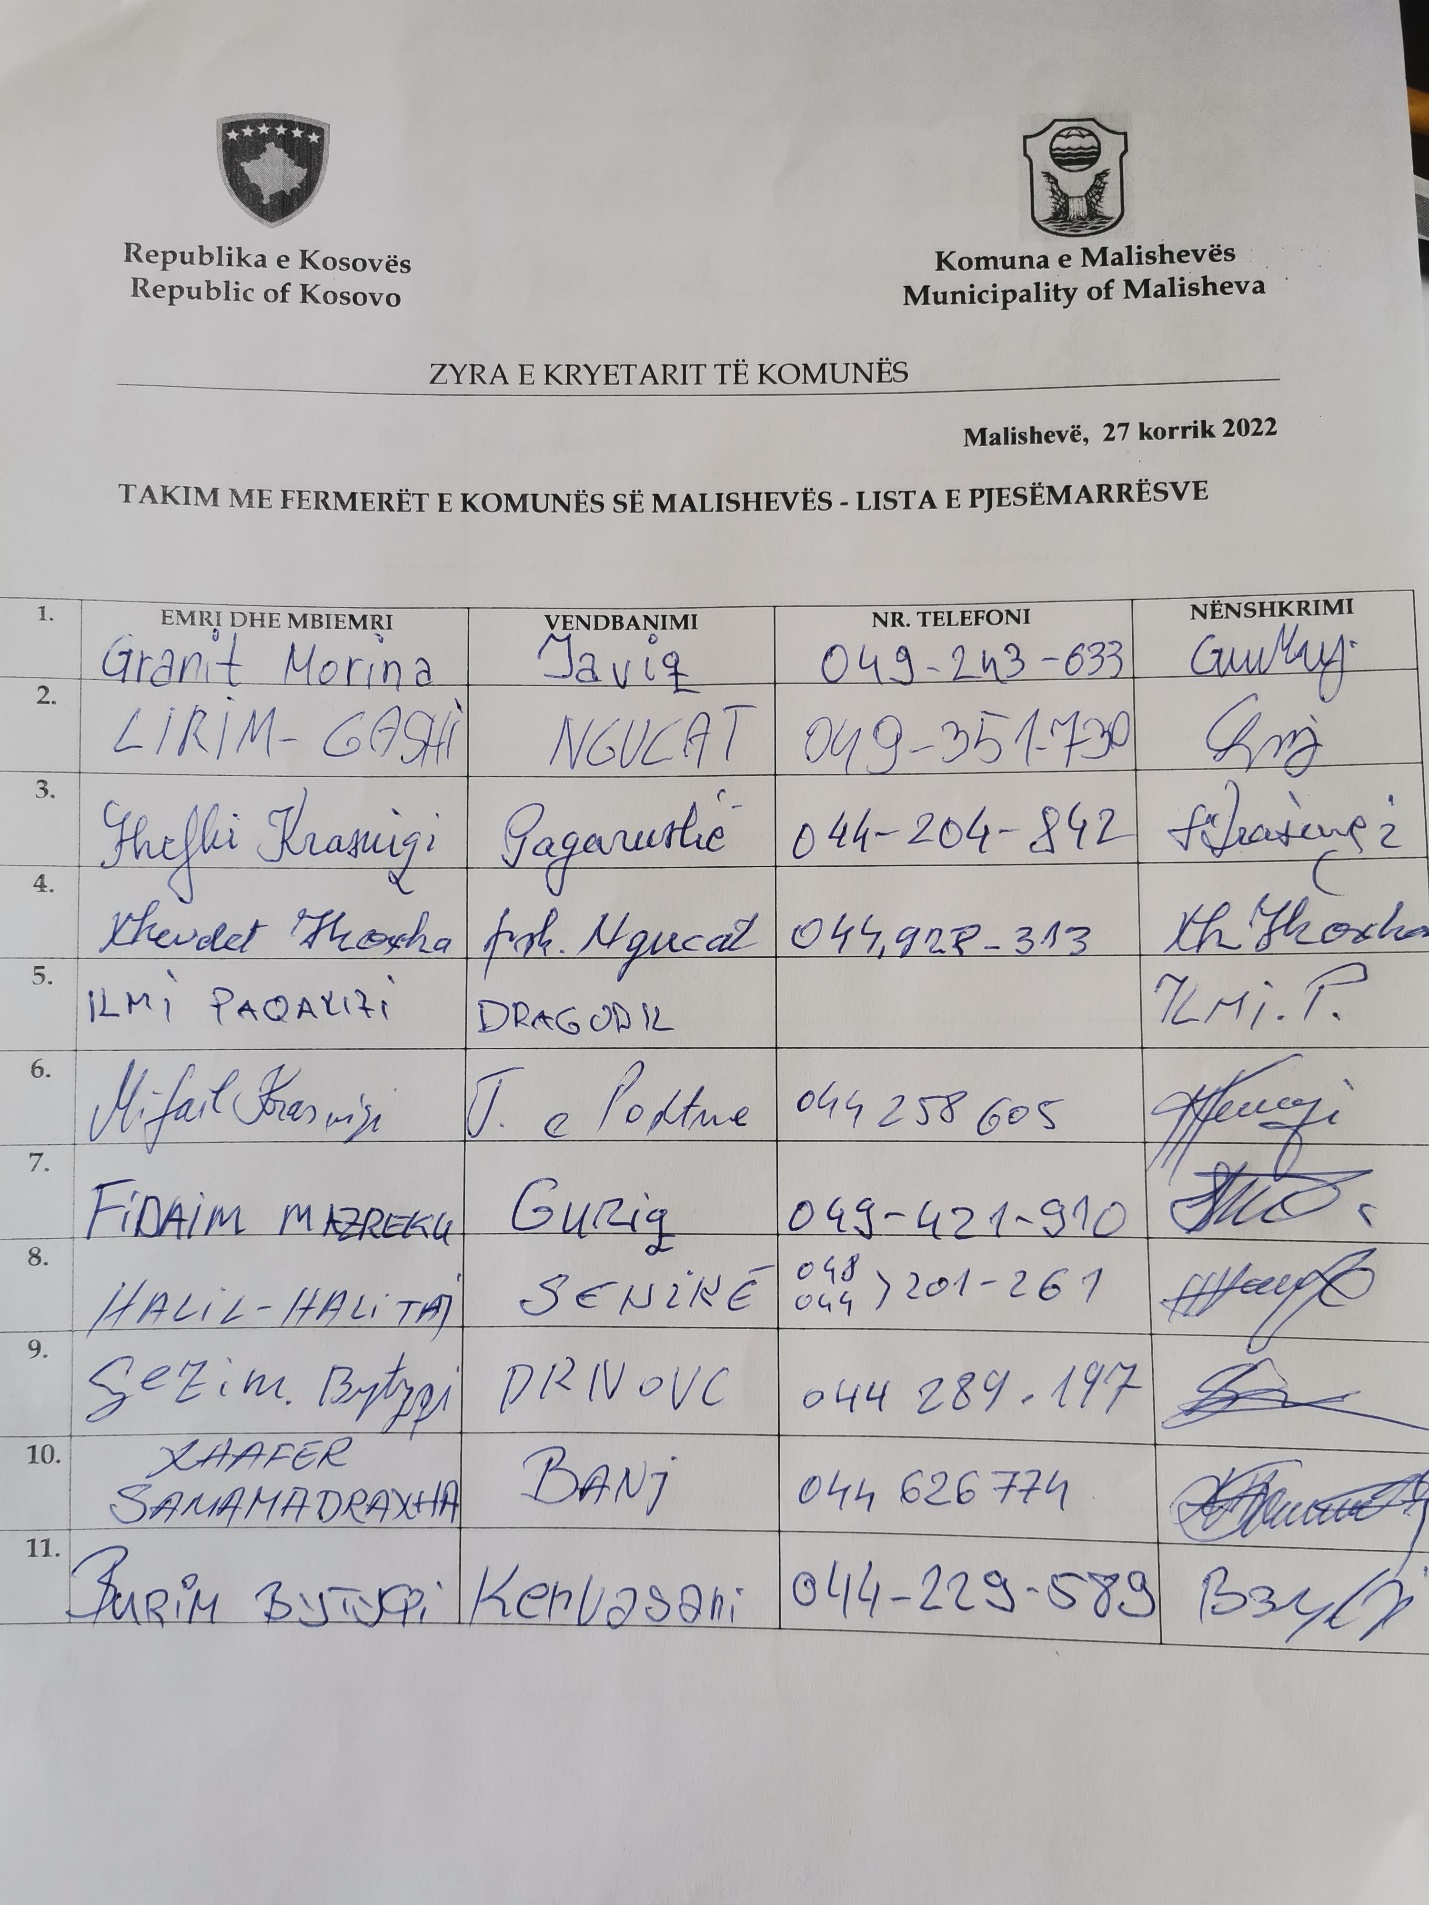 Republika e Kosovës
Republic of Kosovo
Komuna e Malishevës
Municipality of Malisheva
ZYRA E KRYETARIT TË KOMUNËS
Malishevë, 27 korrik 2022
TAKIM ME FERMERËT E KOMUNËS SË MALISHEVËS - LISTA E PJESËMARRËSVE
1. EMRI DHE MBIEMRI VENDBANIMI NR. TELEFONI NËNSHKRIMI
Granit Morina Javiq 049-243-633
2. LIRIM- GASHI NGUCAT 049-351-730
3. Krasniqi Gagarustië 044-204-842
4. Xhevdet Hhoxha Ngucat 044,928-313 Xh Hhoxha
5. ILMI PAQARIZI DRAGOBIL ILMI. P.
6. Mifail Krasniqi T. e Poshtme 044 258 605
7. FiDAiM MAZREKU Guriq 049-421-910
8. HALiL-HALiTAJ SENiKË 048 044 ) 201-261
9. Gezim. Bytyqi DRNOVC 044 289.197
10. XHAFER SAMAMADRAXHA BANJ 044 626 774
11. BURIM BYTYQI Kervasari 044-229-589